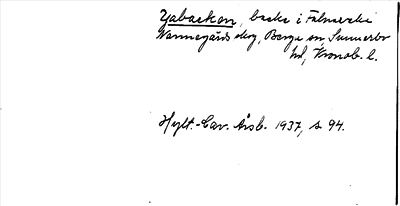 Yabacken, backe i
Wannegårds skog, Berga sn Sunnerbo
hd, Kronob. l.
Hylt.-Cav. Årsb. 1937, s. 94.